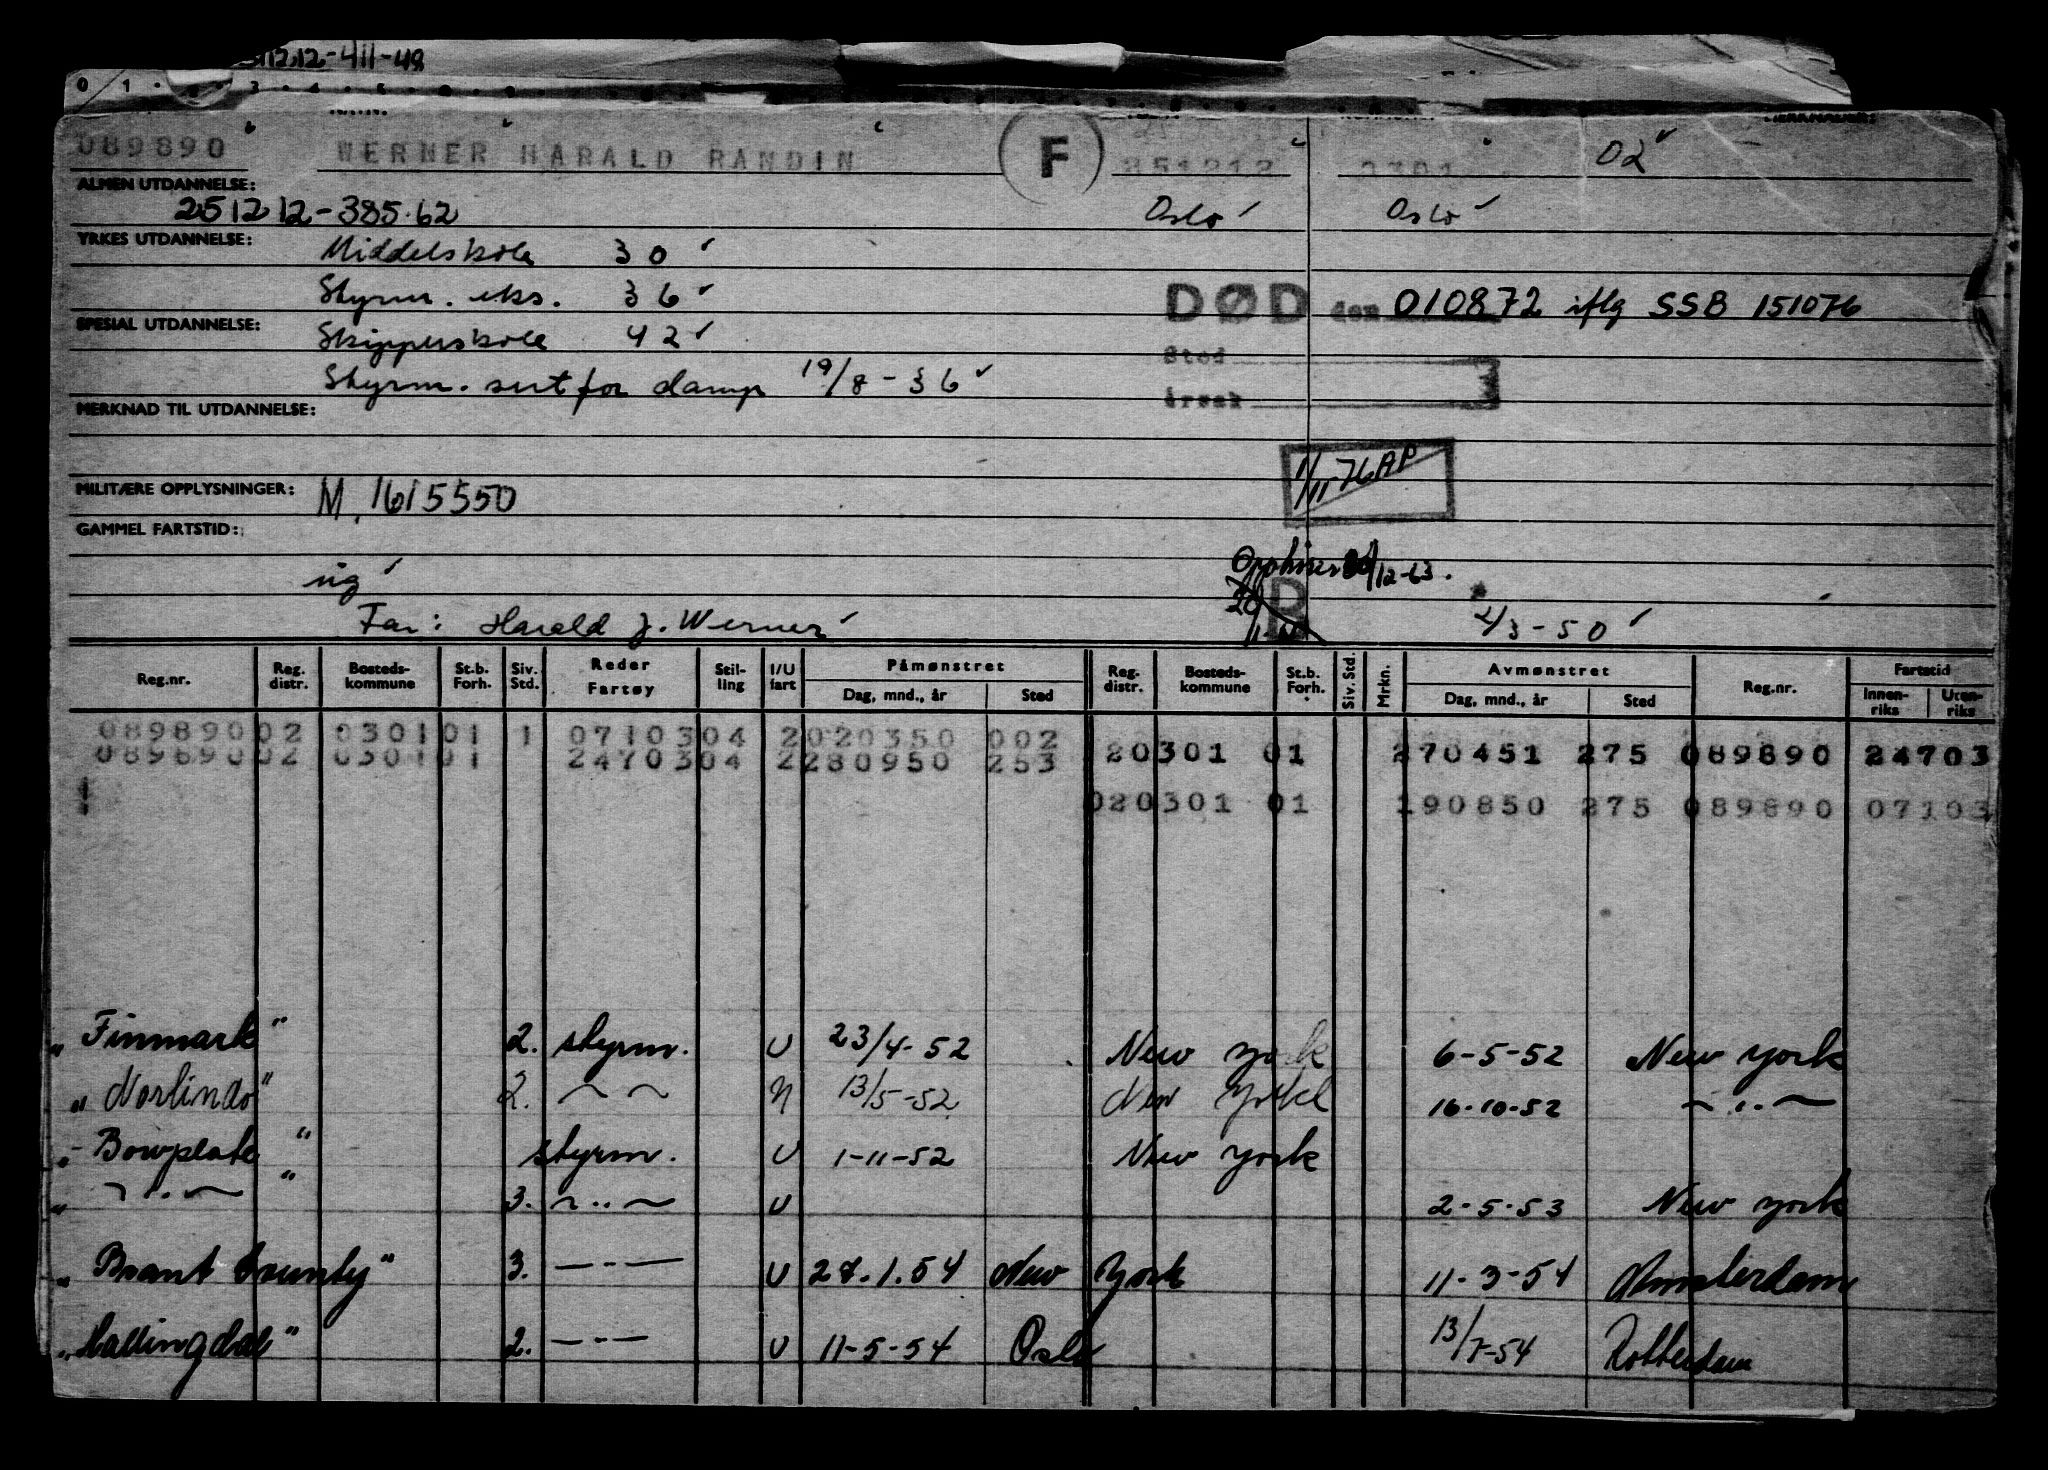 1212-411-48
0 1 . . 3 . 4 . 5
089890 WERNER HARALD RANDIN F 251212 0301 02
ALMEN UTDANNELSE:
251212-385.62 Oslo Oslo
YRKES UTDANNELSE:
Middelskole 30
Styrm. eks. 36 DØD den 010872 iflg SSB 151076
SPESIAL UTDANNELSE:
Skipperskole 42 Sted
Styrm. sert for damp 19/8-36 årsak
MERKNAD TIL UTDANNELSE:
1/11-76 AP
MILITÆRE OPPLYSNINGER: M. 1615550
GAMMEL FARTSTID:
12-63.
Far: Harald J. Werner 2/3-50
Reg.nr. Reg. distr. Bosteds-kommune St.b. Forh. Siv. Std. Reder Fartøy Stil-ling I/U fart Påmønstret Dag, mnd., år Sted Reg. distr. Bosteds-kommune St.b. Forh. Siv. Std. Mrkn. Avmønstret Dag, mnd., år Sted Reg.nr. Fartstid Innen-riks Uten-riks
089890 02 0301 01 1 0710304 2 020350 002
089890 02 0301 01 2470304 2 280950 253 20301 01 270451 275 089890 24703
020301 01 190850 275 089890 07103
"Finmark" 2. styrm. U 23/4-52 New York 6-5-52 New York
"Norlindo" 2. 13/5-52 New York 16-10-52
"Bowplate" styrm. U 1-11-52 New York
3. U 2-5-53 New York
"Brant County" 3. U 27.1.54 New York 11-3-54 Amsterdam
"Hallingdal" 2. U 11-5-54 Oslo 13/7-54 Rotterdam